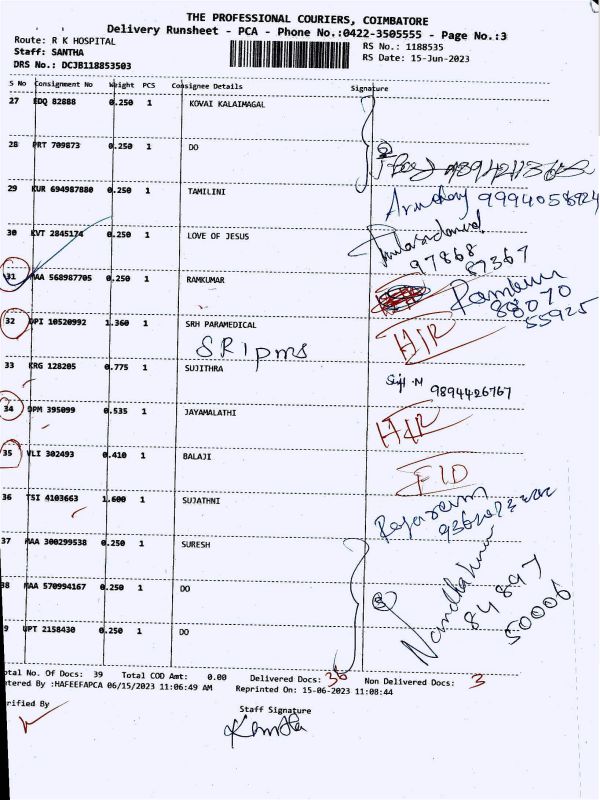 THE PROFESSIONAL COURIERS, COIMBATORE
Delivery Runsheet - PCA - Phone No.:0422-3505555 - Page No.:3
Route: R K HOSPITAL
RS No.: 1188535
Staff: SANTHA
RS Date: 15-Jun-2023
DRS No.: DCJB118853503
S No Consignment No Weight PCS Consignee Details Signature
27 EDQ 82888 0.250 1 KOVAI KALAIMAGAL
28 PRT 709873 0.250 1 DO
29 KUR 694987880 0.250 1 TAMILINI
9994058924
30 KVT 2845174 0.250 1 LOVE OF JESUS
97868
87367
31 MAA 568987705 0.250 1 RAMKUMAR
88070
55925
32 DPI 10520992 1.360 1 SRH PARAMEDICAL
SRI pms
33 KRG 128205 0.775 1 SUJITHRA
9894426767
34 DPM 395099 0.535 1 JAYAMALATHI
35 VLI 302493 0.410 1 BALAJI
36 TSI 4103663 1.600 1 SUJATHNI
Rajaram
37 MAA 300299538 0.250 1 SURESH
38 MAA 570994167 0.250 1 DO
Nandhakumar
84897
50006
9 UPT 2158430 0.250 1 DO
otal No. Of Docs: 39 Total COD Amt: 0.00 Delivered Docs: 36 Non Delivered Docs: 3
ntered By :HAFEEFAPCA 06/15/2023 11:06:49 AM Reprinted On: 15-06-2023 11:08:44
erified By
Staff Signature